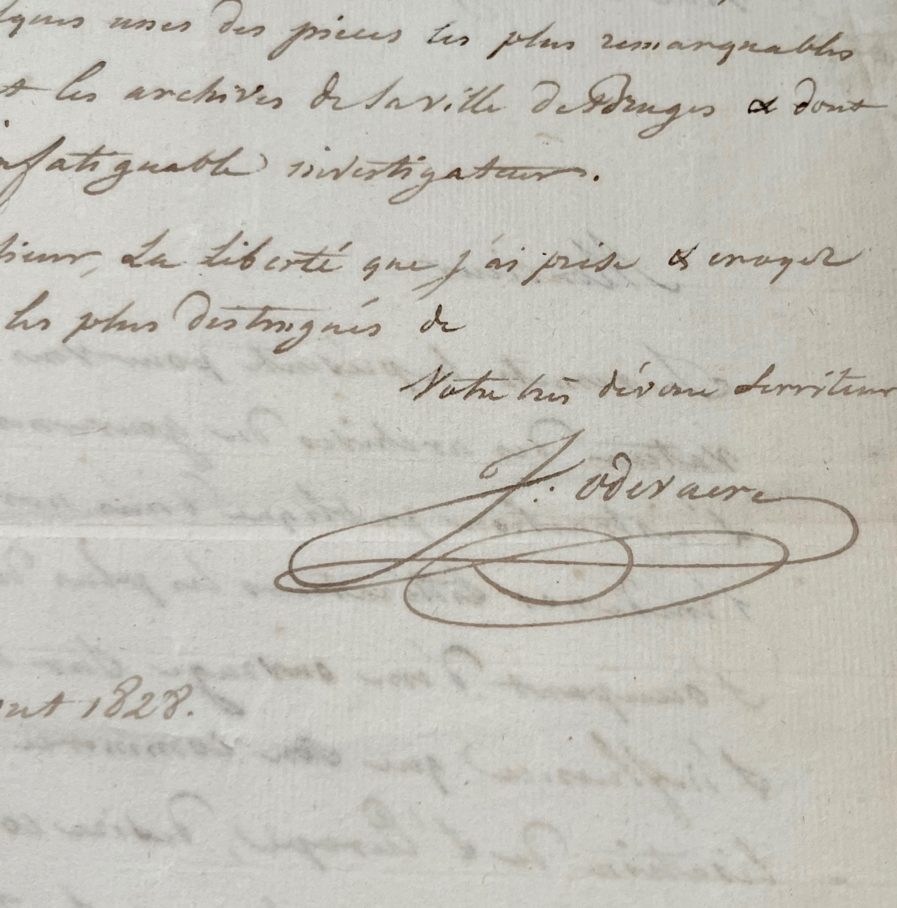 lques unes des pieces les plus remarquables
t les archives de la ville de Bruges & dont
nfatiguable investigateur.
sieur, La Liberté que j'ai prise & croyez
les plus distingués de
Votre très dévoué Serviteur
J. odevaere
out 1828.